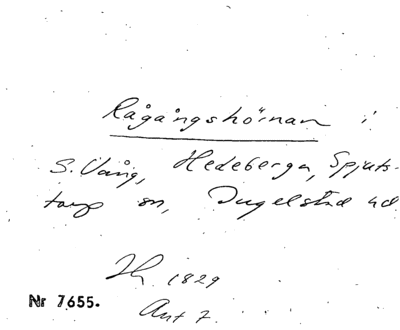 Rågångshörnan i
S. Vång, Hedeberga, Spjuts-
torp sn, Ingelstad hd
Ih. 1829
Nr 7655.
Ant 7